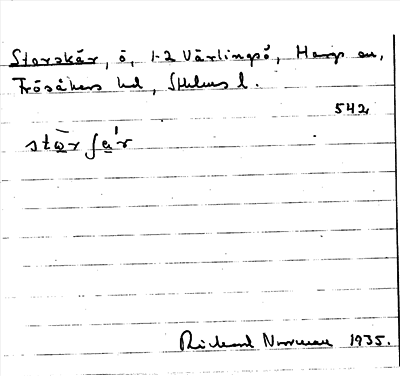 Storskär, ö, 1-2 Värlingsö, Hargs sn,
Frösåkers hd, Sthlms l.
542
stòrʃä́r
Rickard Norrman 1935.